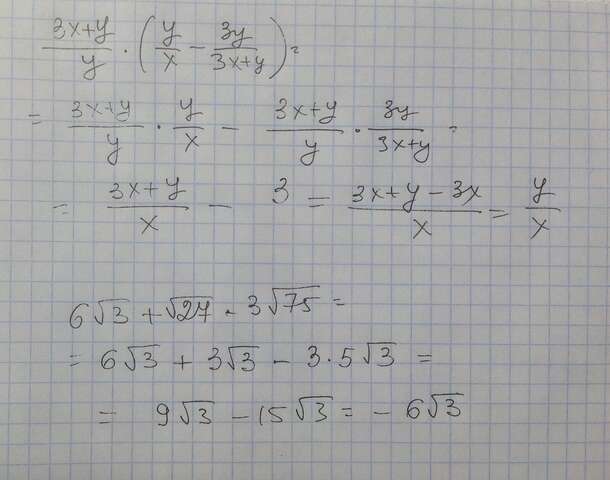 (3x+y)/y · (y/x − 3y/(3x+y)) =
= (3x+y)/y · y/x − (3x+y)/y · 3y/(3x+y) =
= (3x+y)/x − 3 = (3x+y−3x)/x = y/x
6√3 + √27 - 3√75 =
= 6√3 + 3√3 − 3·5√3 =
= 9√3 − 15√3 = − 6√3